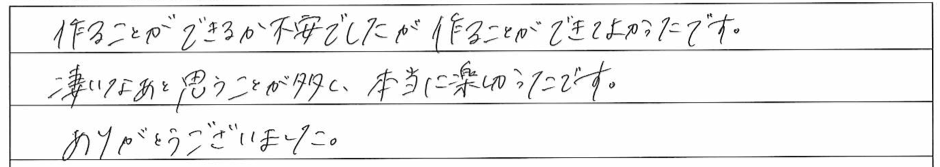 作ることができるか不安でしたが作ることができてよかったです。
凄いなあと思うことが多く、本当に楽しかったです。
ありがとうございました。